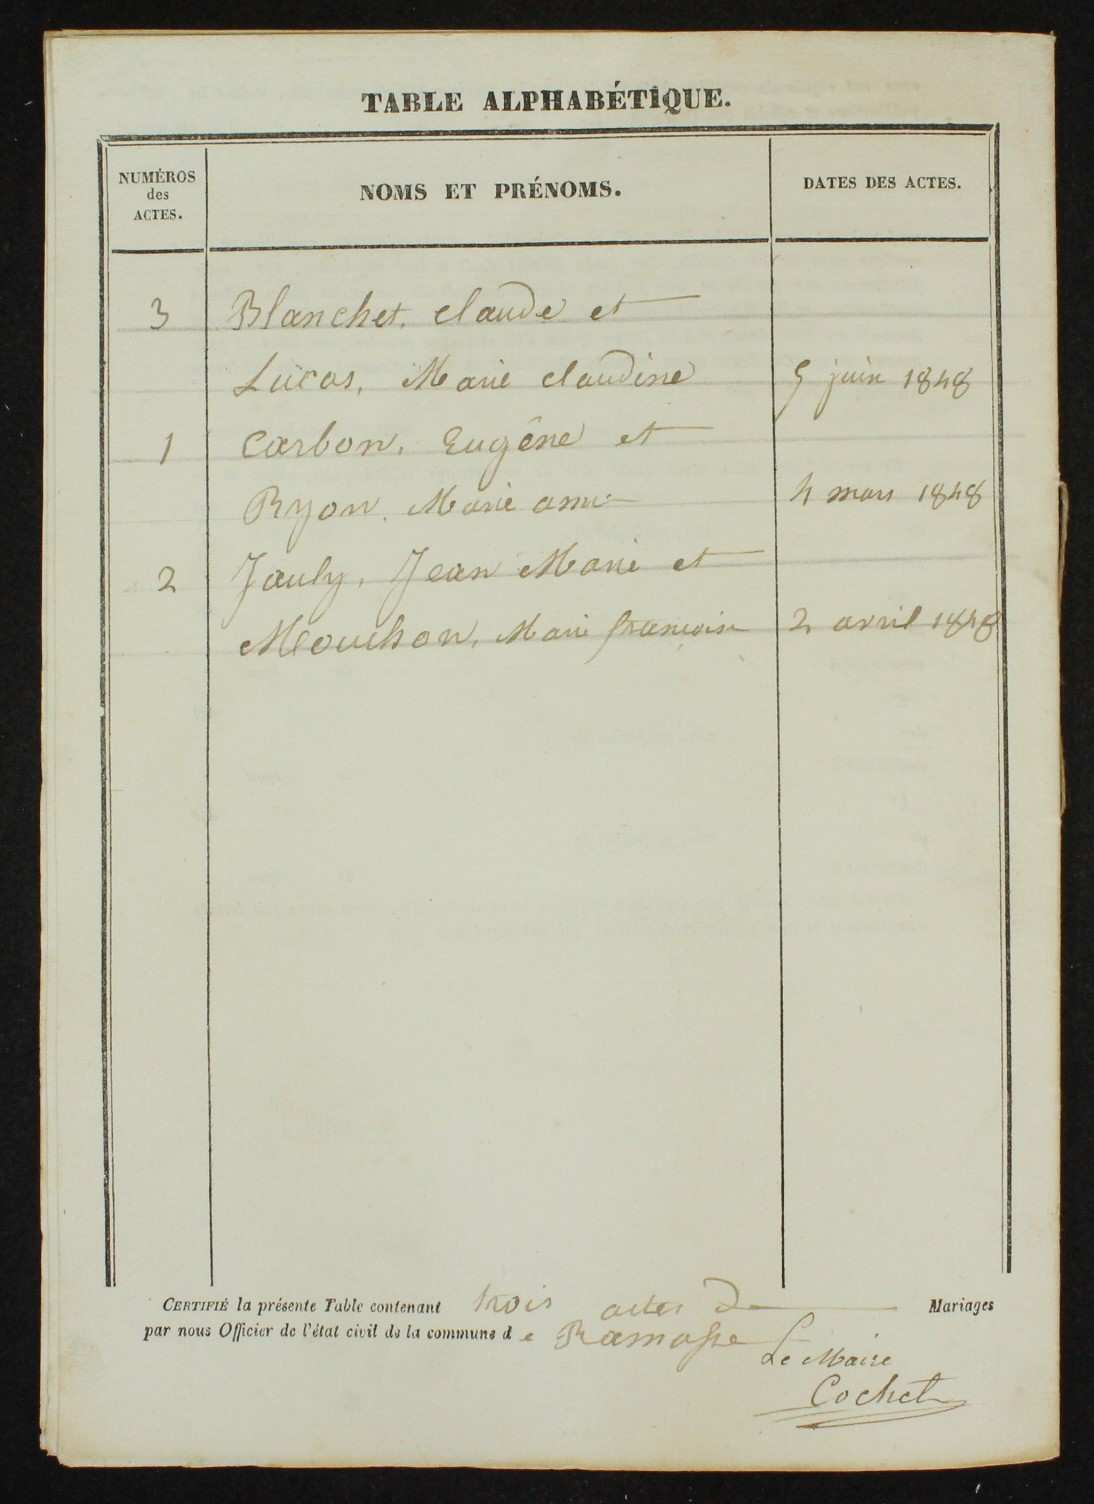 TABLE ALPHABÉTIQUE.
NUMÉROS
des
ACTES.
NOMS ET PRÉNOMS.
DATES DES ACTES.
3 Blanchet, Claude et
Lucas, Marie Claudine 5 juin 1848
1 Carbon, Eugêne et
Ryon, Marie anne 4 mars 1848
2 Jauly, Jean Marie et
Mouchon, Marie françoise 2 avril 1848
CERTIFIÉ la présente Table contenant trois actes de Mariages
par nous Officier de l'état civil de la commune de Ramasse
Le Maire
Cochet